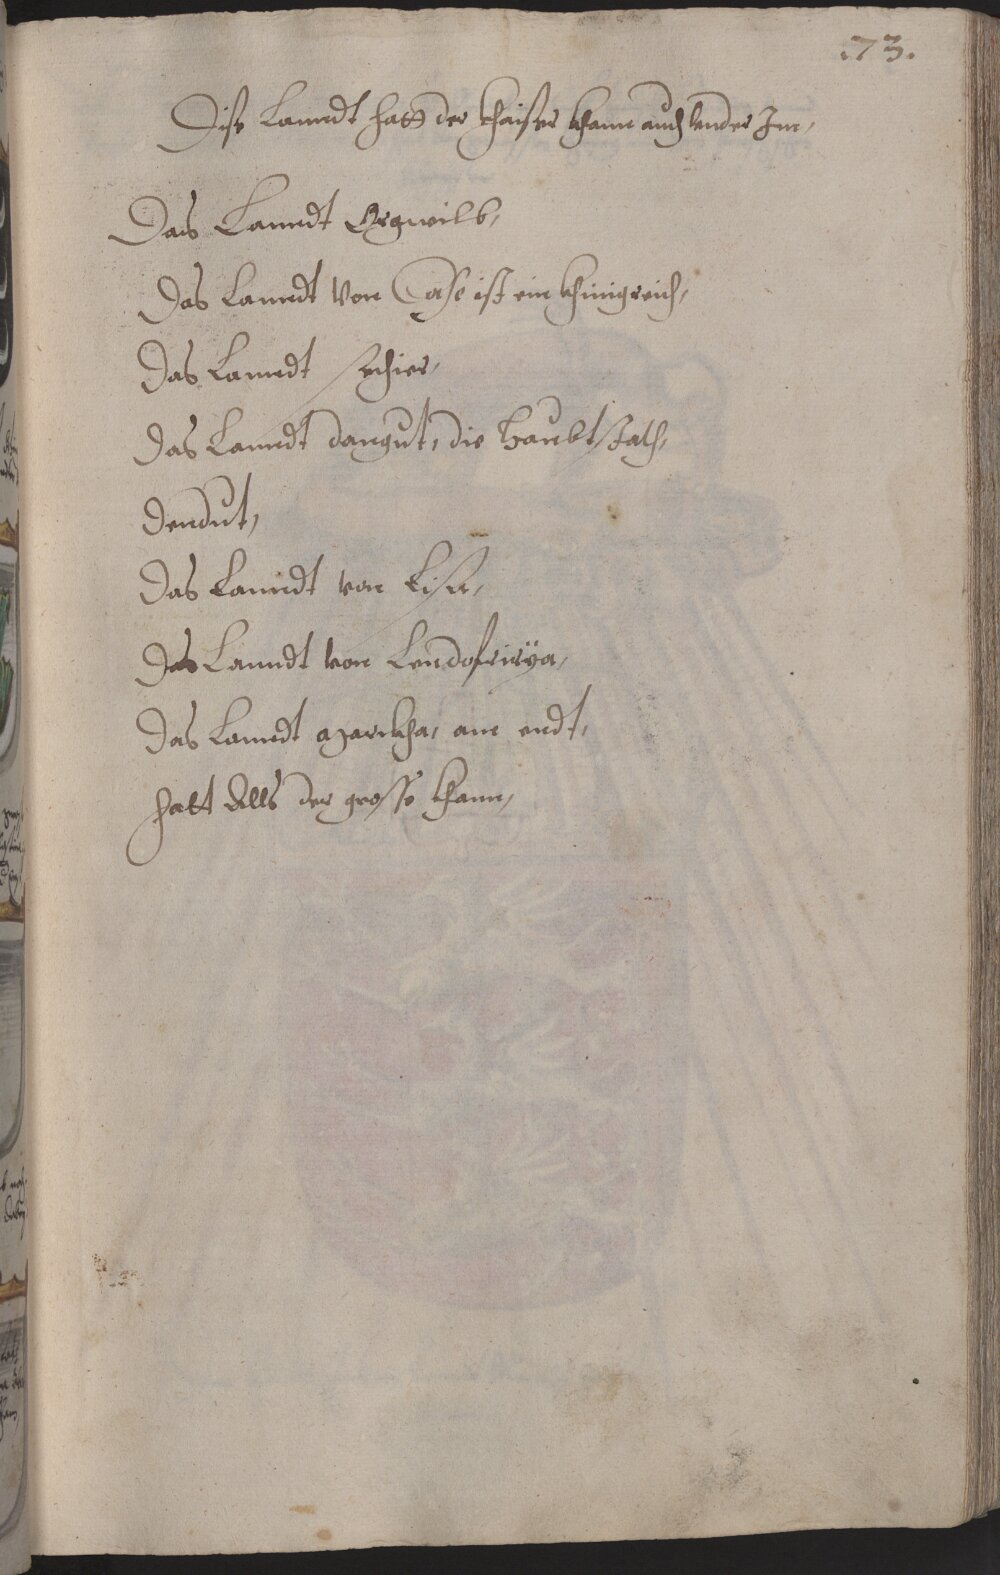 .73.
Dise Lanndt hatt der Khaiser Khann auch vnder Im,
Das Lanndt Orgwilb,
Das Lanndt von Case ist ein Khinigreich,
Das Lanndt schier,
Das Lanndt dangut, die Haubtstath,
Dendut,
Das Lanndt von Lisu,
Das Lanndt von Lendofrirÿa,
Das Lanndt Marckha, am endt,
hatt Alls der grosse Khann,